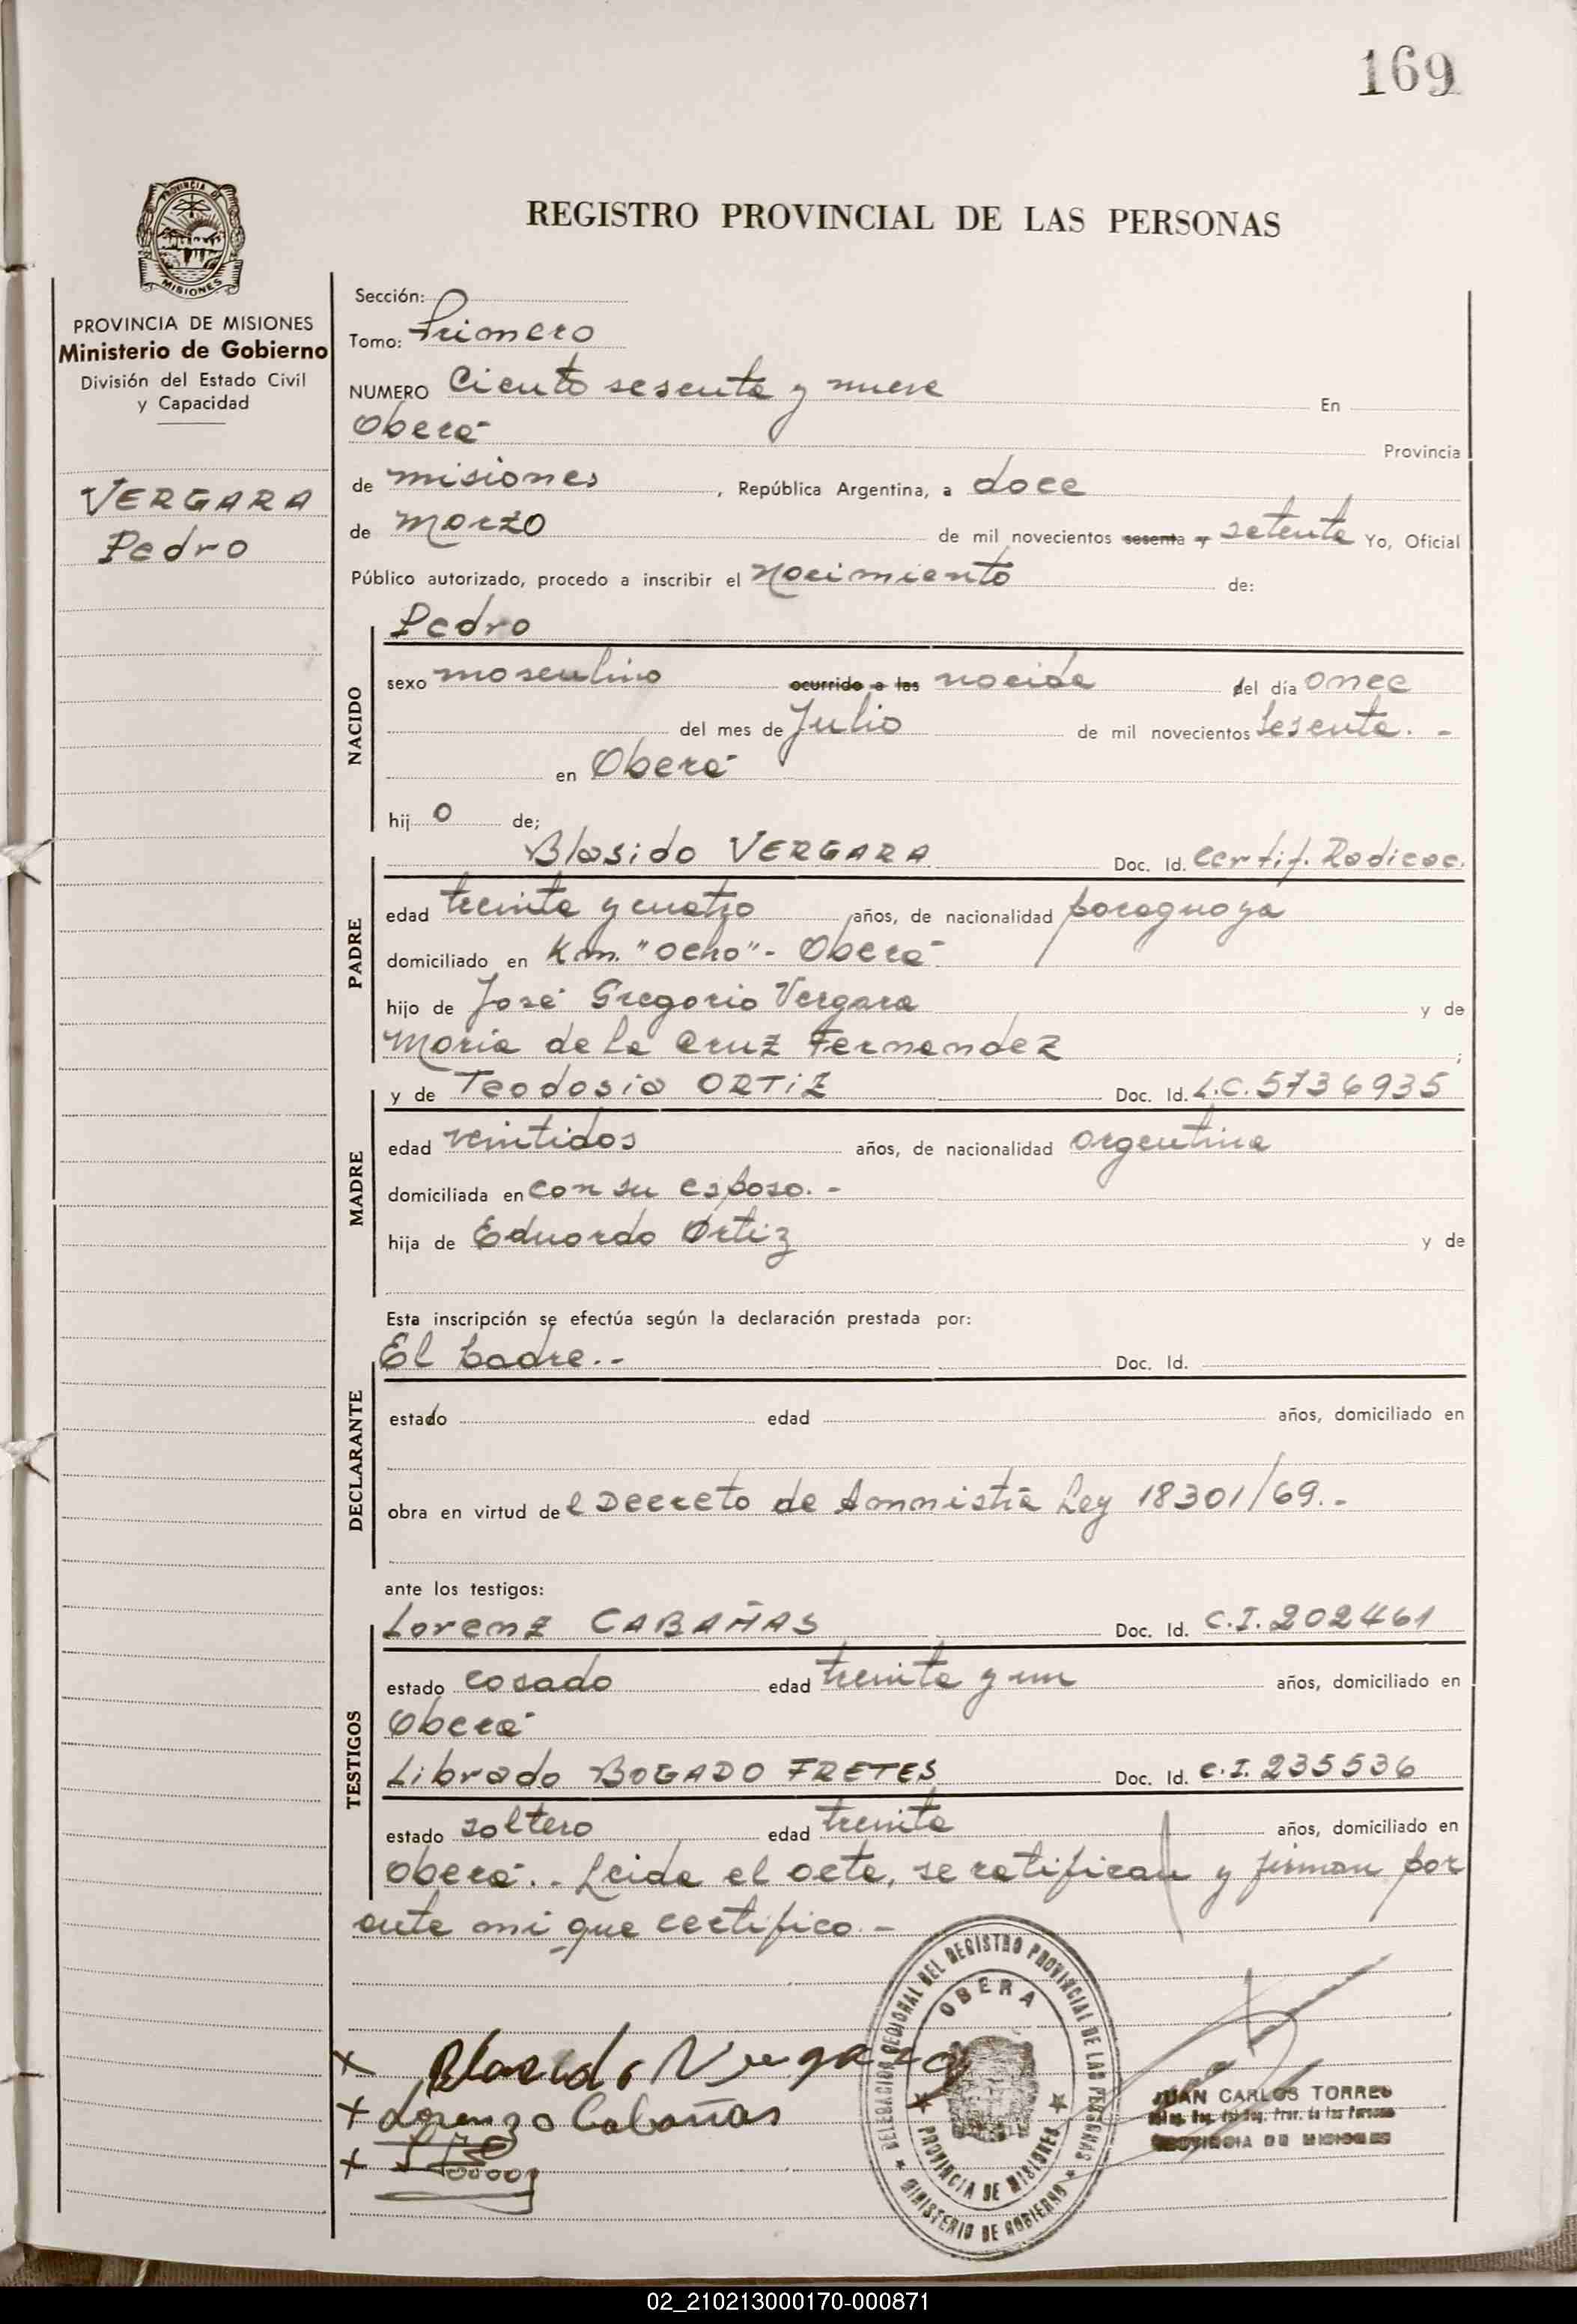 169
PROVINCIA DE
MISIONES
REGISTRO PROVINCIAL DE LAS PERSONAS
PROVINCIA DE MISIONES
Ministerio de Gobierno
División del Estado Civil
y Capacidad
VERGARA
Pedro
Sección:
Tomo: Primero
NUMERO Ciento sesenta y nueve En
Oberá Provincia
de misiones, República Argentina, a doce
de Marzo de mil novecientos sesenta y setenta Yo, Oficial
Público autorizado, procedo a inscribir el nacimiento de:
NACIDO
Pedro
sexo masculino ocurrido a las nacida del día once
del mes de Julio de mil novecientos sesenta. -
en Oberá
hij o de;
PADRE
Blasido VERGARA Doc. Id. Certif. Radicac.
edad treinta y cuatro años, de nacionalidad paraguaya
domiciliado en Km. "Ocho" - Oberá
hijo de José Gregorio Vergara y de
Maria de la Cruz Fernandez ;
MADRE
y de Teodosia ORTIZ Doc. Id. L.C. 5736935
edad veintidos años, de nacionalidad argentina
domiciliada en con su esposo. -
hija de Eduardo Ortiz y de
Esta inscripción se efectúa según la declaración prestada por:
DECLARANTE
El padre. - Doc. Id.
estado edad años, domiciliado en
obra en virtud de l Decreto de Amnistia Ley 18301/69. -
ante los testigos:
TESTIGOS
Lorenz CABAÑAS Doc. Id. C.I. 202461
estado casado edad treinta y un años, domiciliado en
Oberá
Librado BOGADO FRETES Doc. Id. C.I. 235536
estado soltero edad treinta años, domiciliado en
Oberá. - Leida el acta, se ratifican y firman por
ante mi que certifico. -
DELEGACION REGIONAL DEL REGISTRO PROVINCIAL DE LAS PERSONAS
OBERA
PROVINCIA DE MISIONES
MINISTERIO DE GOBIERNO
x Blasido Vergara
x Lorenzo Cabañas
x
JUAN CARLOS TORRES
PROVINCIA DE MISIONES
02_210213000170-000871